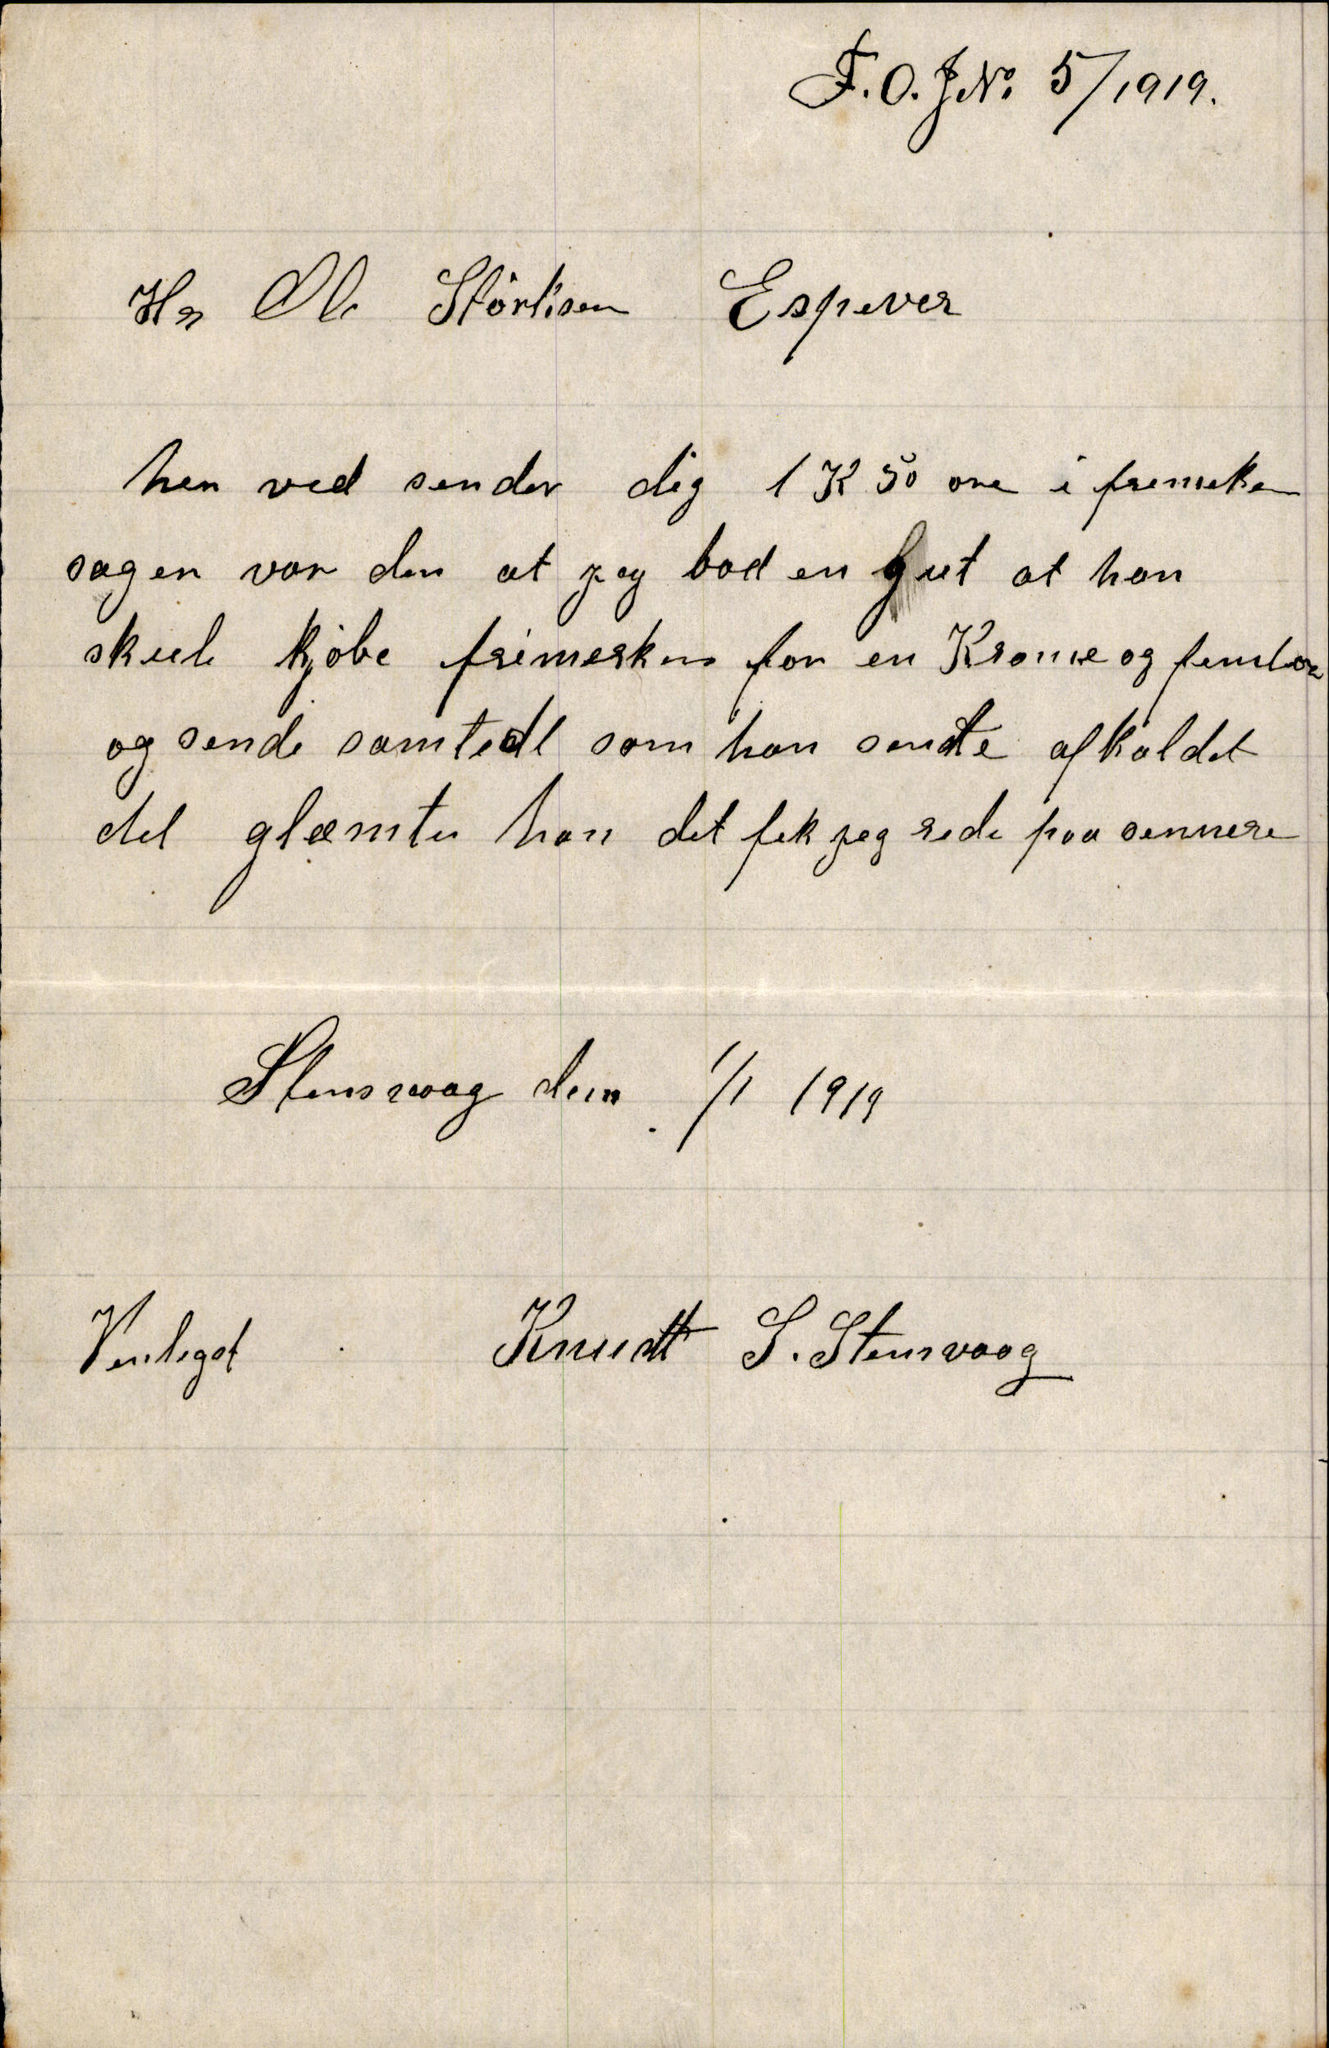 F.O.J.No 5/1919.
Hr Ole Störksen Espever
her ved sender dig 1 K 50 ore i frimeker
sagen var den at jeg bad en gut at han
skule kjöbe frimerker for en Krone og femti ore
og sende samtedl som han sendte afkaldet
det glæmte han det fek jeg rede paa sennere
Stensvaag den 1/1 1919
Venligst Knudt S. Stensvaag